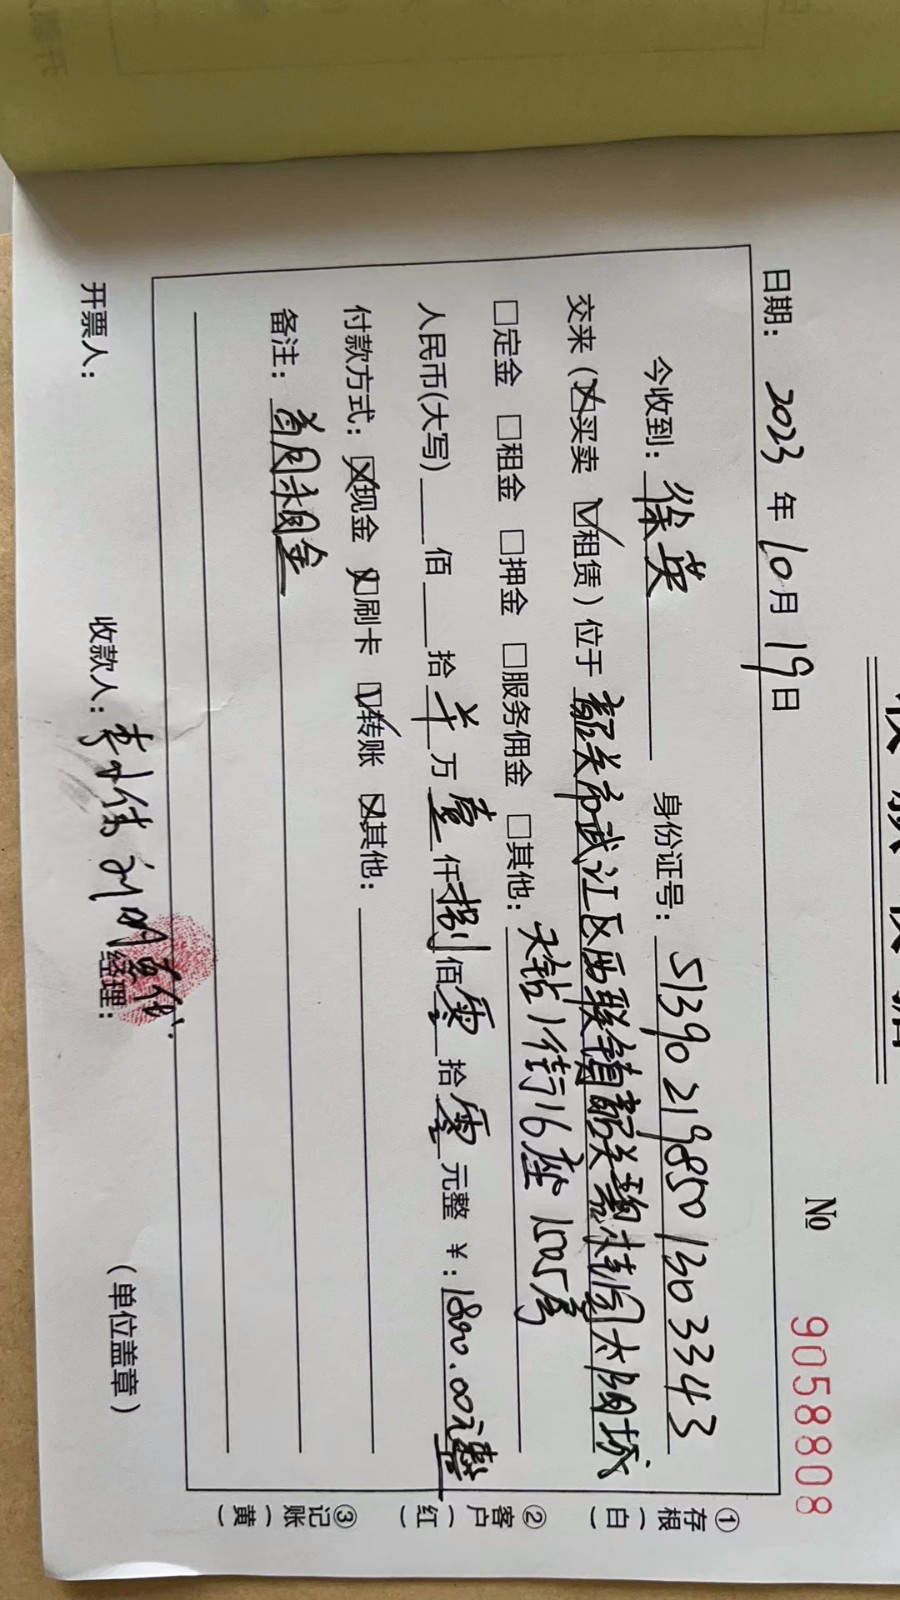 № 9058808
日期：2023年10月19日
今收到：徐英 身份证号：513902198501303343
交来（☒买卖 ☑租赁）位于韶关市武江区西联镇韶关碧桂园太阳城
□定金 □租金 □押金 □服务佣金 □其他：天钻1街16座1505房
人民币(大写)___佰___拾 万壹仟捌佰零拾零元整 ￥：1800.00元整
付款方式：☒现金 ☒刷卡 ☑转账 ☒其他：
备注：首月租金
开票人： 收款人：李 刘 经理： （单位盖章）
①存根（白）
②客户（红）
③记账（黄）